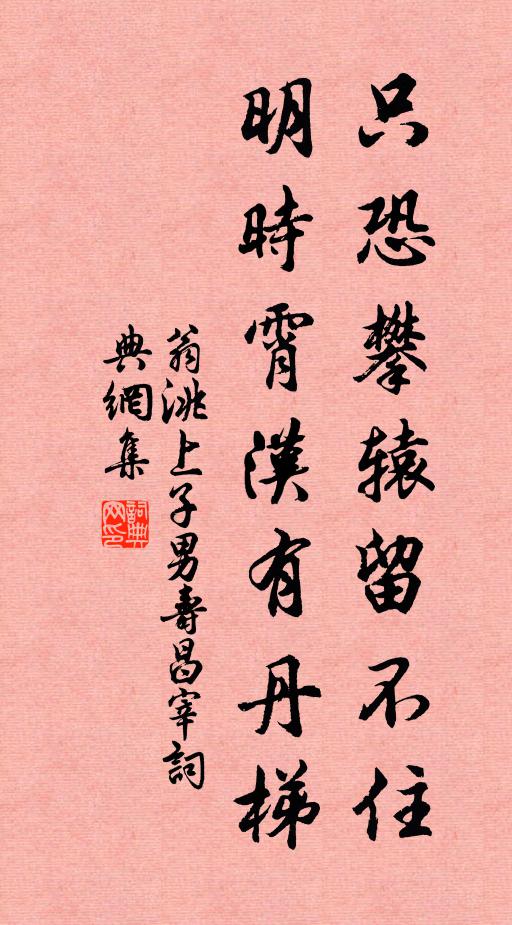 只恐攀辕留不住
明時霄漢有丹梯
翁洮上子男寿昌宰詞
典網集
詞典网印